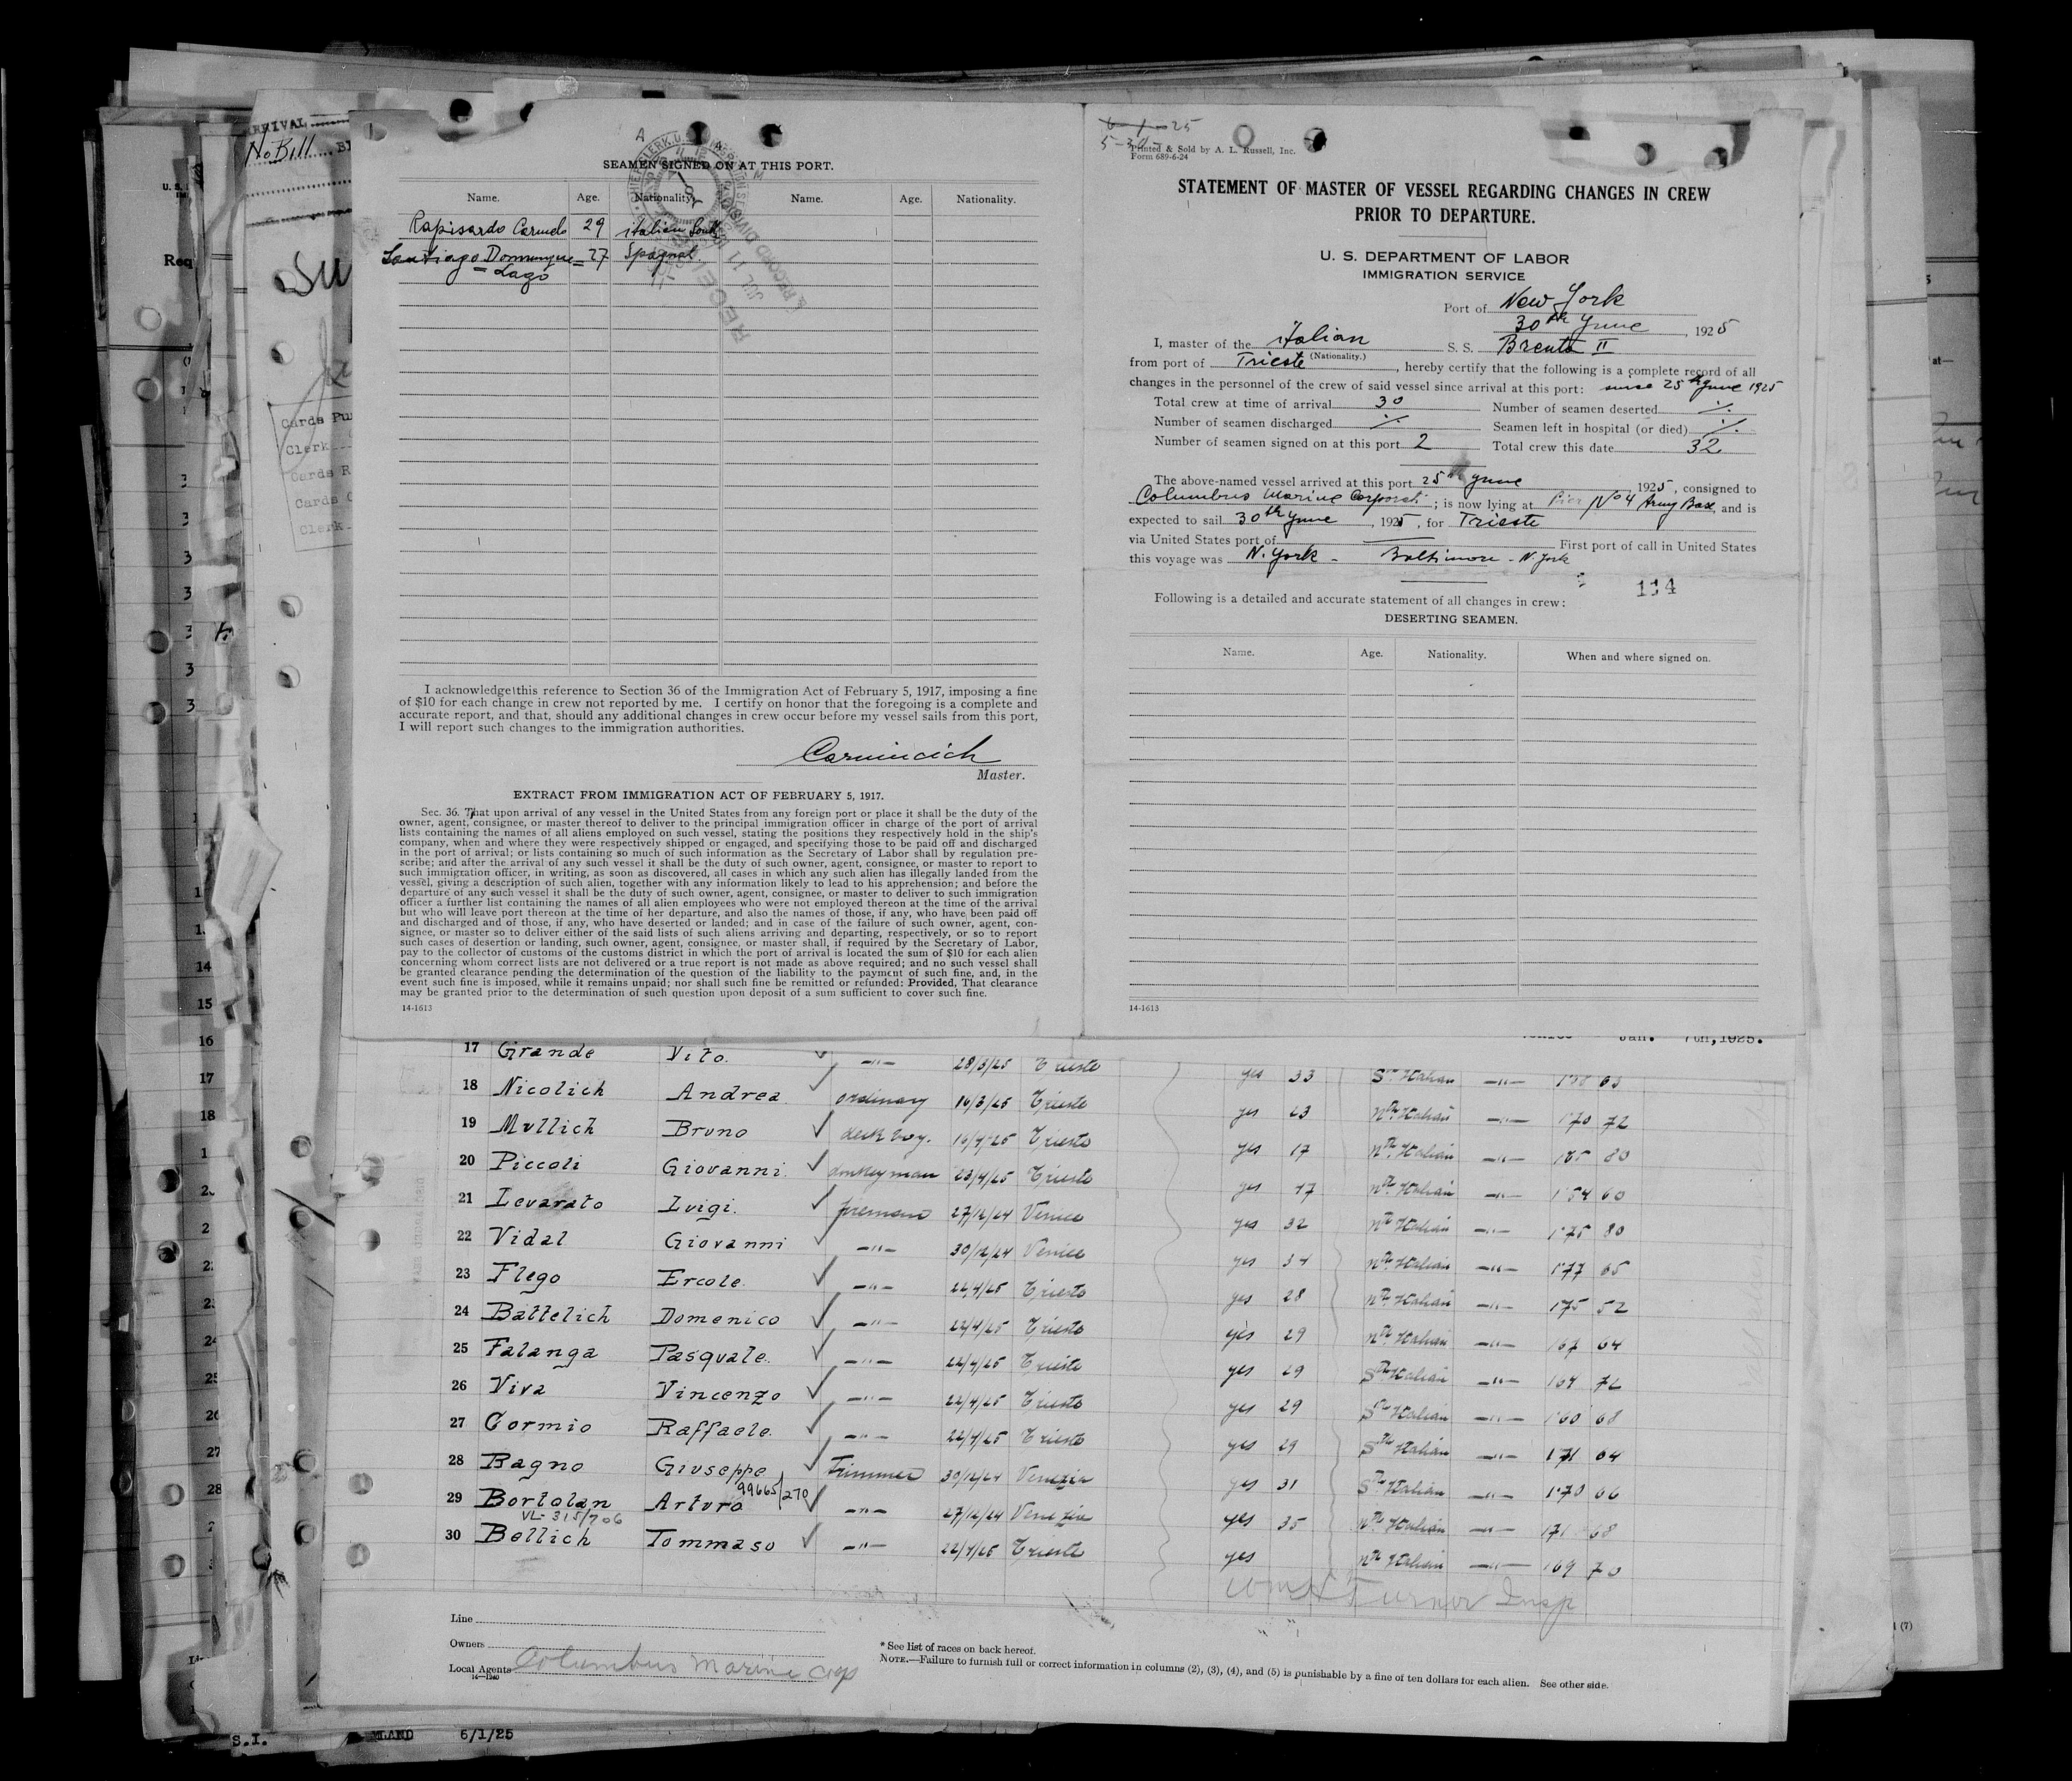 SEAMEN SIGNED ON AT THIS PORT.
Name. Age. Nationality. Name. Age. Nationality.
Rapisardo Carmelo 29 italian South
Santiago Domingue = 27 Spagnal
= Lago
I acknowledge this reference to Section 36 of the Immigration Act of February 5, 1917, imposing a fine
of $10 for each change in crew not reported by me. I certify on honor that the foregoing is a complete and
accurate report, and that, should any additional changes in crew occur before my vessel sails from this port,
I will report such changes to the immigration authorities.
Master.
EXTRACT FROM IMMIGRATION ACT OF FEBRUARY 5, 1917.
Sec. 36. That upon arrival of any vessel in the United States from any foreign port or place it shall be the duty of the
owner, agent, consignee, or master thereof to deliver to the principal immigration officer in charge of the port of arrival
lists containing the names of all aliens employed on such vessel, stating the positions they respectively hold in the ship's
company, when and where they were respectively shipped or engaged, and specifying those to be paid off and discharged
in the port of arrival; or lists containing so much of such information as the Secretary of Labor shall by regulation pre-
scribe; and after the arrival of any such vessel it shall be the duty of such owner, agent, consignee, or master to report to
such immigration officer, in writing, as soon as discovered, all cases in which any such alien has illegally landed from the
vessel, giving a description of such alien, together with any information likely to lead to his apprehension; and before the
departure of any such vessel it shall be the duty of such owner, agent, consignee, or master to deliver to such immigration
officer a further list containing the names of all alien employees who were not employed thereon at the time of the arrival
but who will leave port thereon at the time of her departure, and also the names of those, if any, who have been paid off
and discharged and of those, if any, who have deserted or landed; and in case of the failure of such owner, agent, con-
signee, or master so to deliver either of the said lists of such aliens arriving and departing, respectively, or so to report
such cases of desertion or landing, such owner, agent, consignee, or master shall, if required by the Secretary of Labor,
pay to the collector of customs of the customs district in which the port of arrival is located the sum of $10 for each alien
concerning whom correct lists are not delivered or a true report is not made as above required; and no such vessel shall
be granted clearance pending the determination of the question of the liability to the payment of such fine, and, in the
event such fine is imposed, while it remains unpaid; nor shall such fine be remitted or refunded: Provided, That clearance
may be granted prior to the determination of such question upon deposit of a sum sufficient to cover such fine.
14-1613
Printed & Sold by A. L. Russell, Inc.
Form 689-6-24
STATEMENT OF MASTER OF VESSEL REGARDING CHANGES IN CREW
PRIOR TO DEPARTURE.
U. S. DEPARTMENT OF LABOR
IMMIGRATION SERVICE
Port of New York
30th June, 1925
I, master of the italian S. S. Brenta II
(Nationality.)
from port of Trieste, hereby certify that the following is a complete record of all
changes in the personnel of the crew of said vessel since arrival at this port: since 25th June 1925
Total crew at time of arrival 30 Number of seamen deserted ./.
Number of seamen discharged ./. Seamen left in hospital (or died) ./.
Number of seamen signed on at this port 2 Total crew this date 32
The above-named vessel arrived at this port 25th June 1925, consigned to
Columbus Marine Corporat; is now lying at Pier No 4 Army Base, and is
expected to sail 30th June, 1925, for Trieste
via United States port of First port of call in United States
this voyage was N. York - Baltimore - N. York
114
Following is a detailed and accurate statement of all changes in crew:
DESERTING SEAMEN.
Name. Age. Nationality. When and where signed on.
14-1613
Jan. 7th, 1925.
17 Grande Vito. -"- 28/3/25 Trieste yes 33 Sth Italian -"- 158 63
18 Nicolich Andrea ordinary 16/3/25 Trieste yes 23 Nth Italian -"- 170 72
19 Mullich Bruno deck boy. 16/4/25 Trieste yes 17 Nth Italian -"- 185 80
20 Piccoli Giovanni donkeyman 23/4/25 Trieste yes 47 Nth Italian -"- 154 60
21 Levarato Luigi. fireman 27/12/24 Venice yes 32 Nth Italian -"- 175 80
22 Vidal Giovanni -"- 30/12/24 Venice yes 34 Nth Italian -"- 177 65
23 Flego Ercole -"- 22/4/25 Trieste yes 28 Nth Italian -"- 175 52
24 Battelich Domenico -"- 22/4/25 Trieste yes 29 Nth Italian -"- 167 64
25 Falanga Pasquale. -"- 22/4/25 Trieste yes 29 Sth Italian -"- 164 72
26 Viva Vincenzo -"- 22/4/25 Trieste yes 29 Sth Italian -"- 160 68
27 Cormio Raffaele. -"- 22/4/25 Trieste yes 29 Sth Italian -"- 171 64
28 Bagno Giuseppe Trimmer 30/12/24 Venezia yes 31 Sth Italian -"- 170 66
99665/270
29 Bortolan Arturo -"- 27/12/24 Venezia yes 35 Nth Italian -"- 171 68
VL-315/706
30 Bellich Tommaso -"- 22/4/25 Trieste yes Nth Italian -"- 169 70
Wm H Turner Insp
Line
Owners
Local Agents Columbus Marine Corp
14-1240
* See list of races on back hereof.
NOTE.—Failure to furnish full or correct information in columns (2), (3), (4), and (5) is punishable by a fine of ten dollars for each alien. See other side.
S.I. 6/1/25